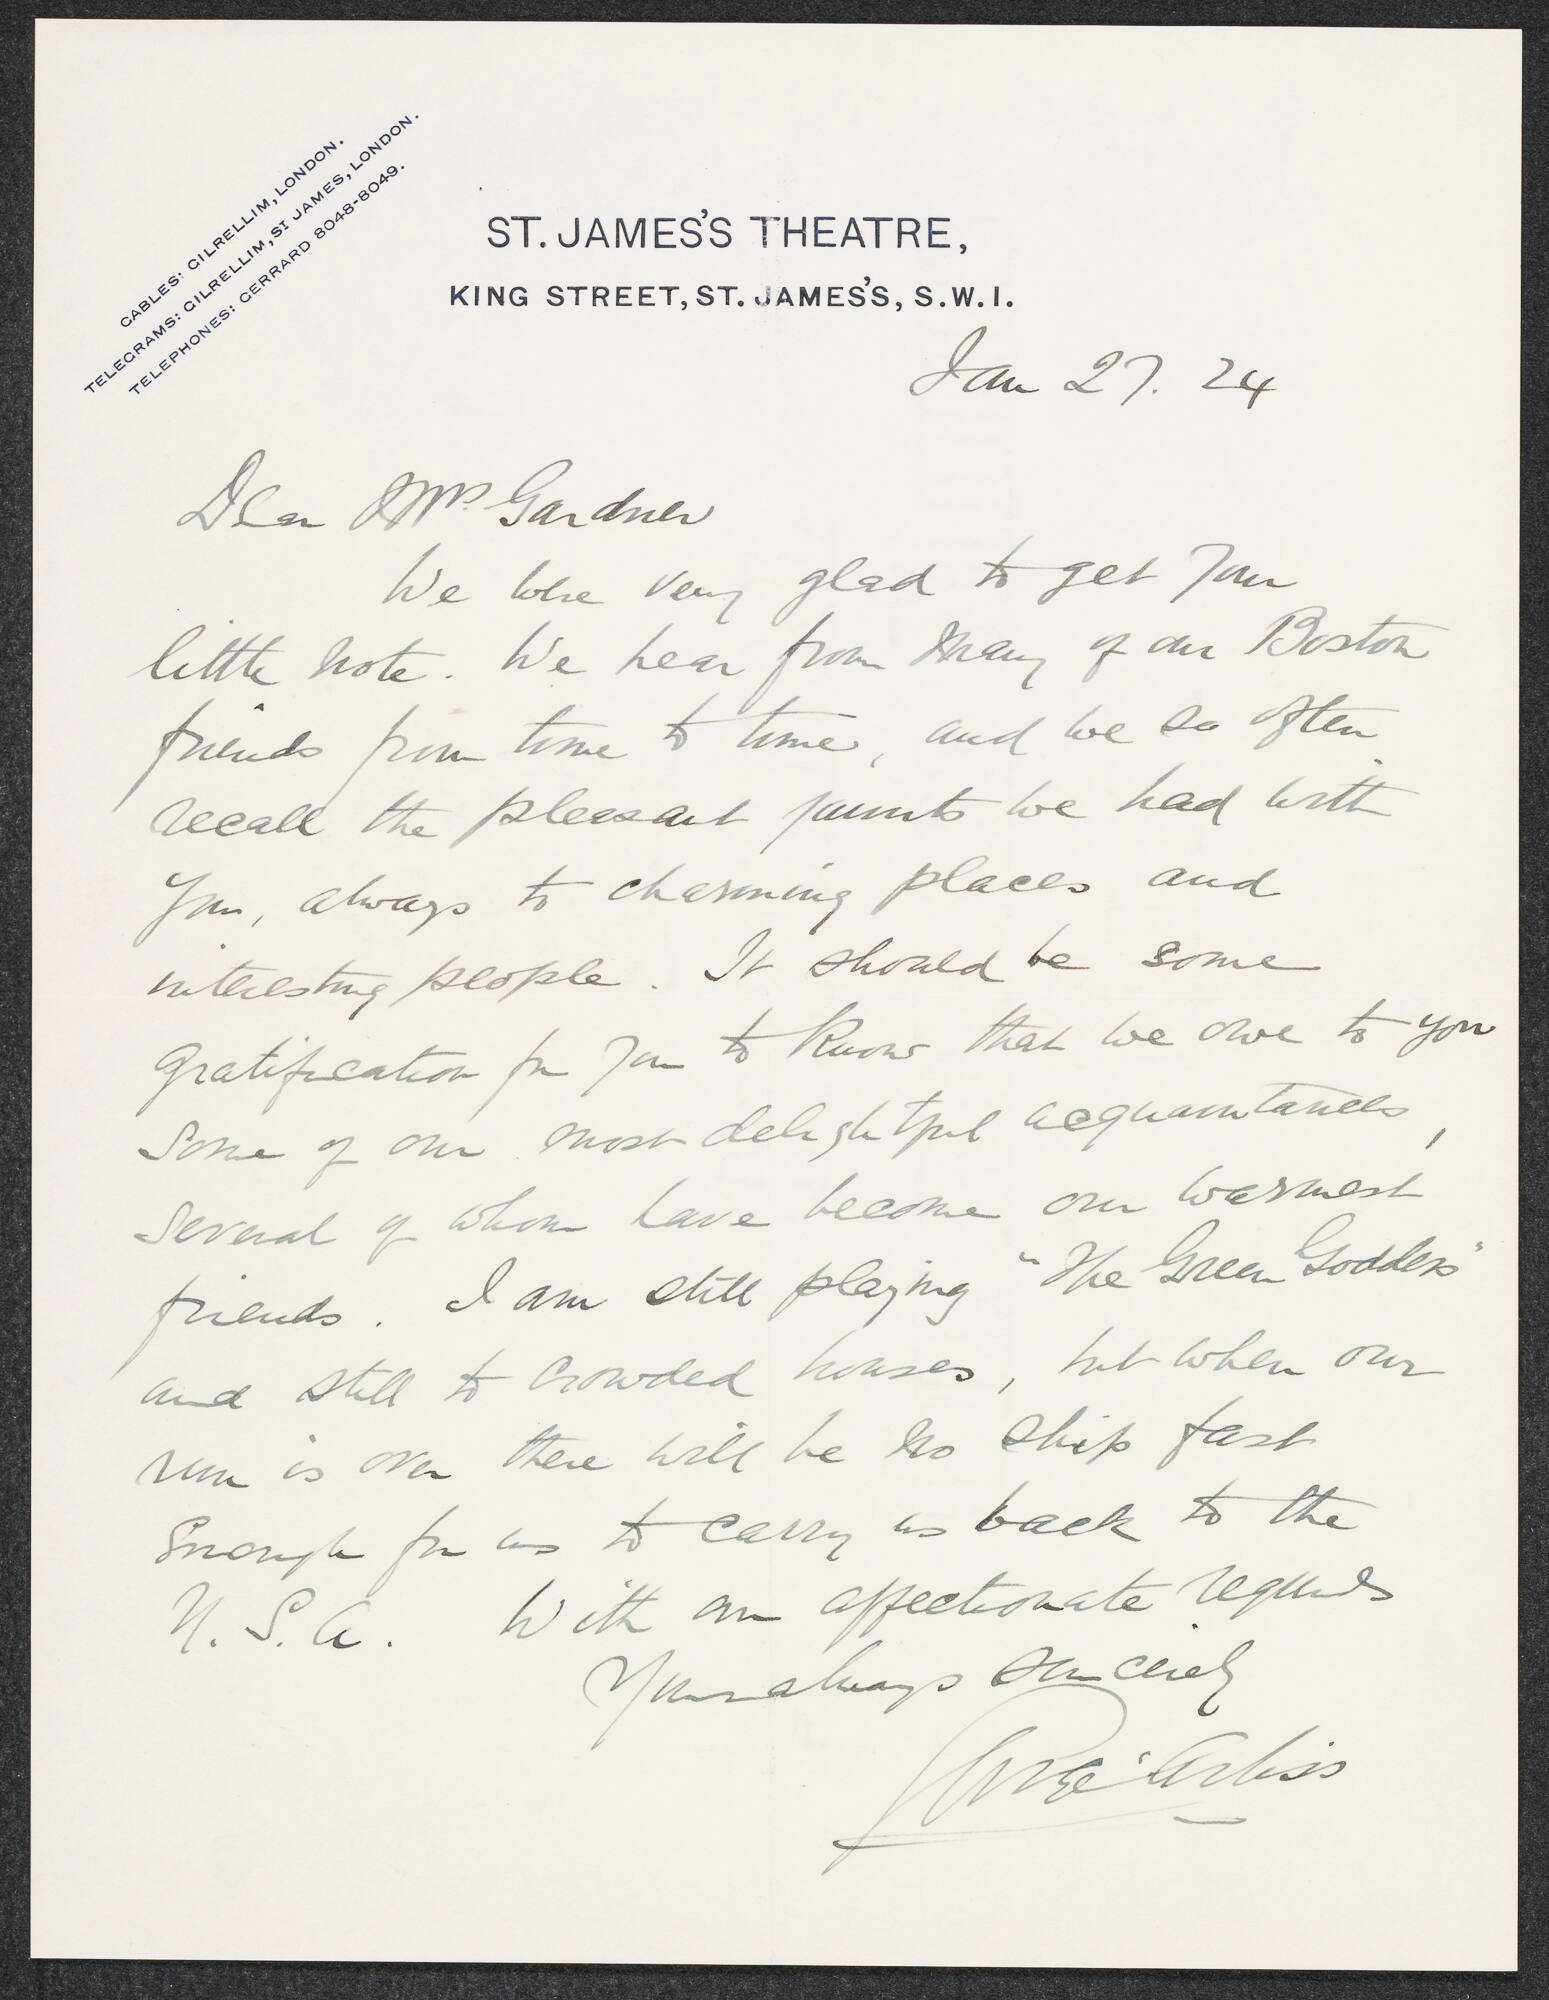 CABLES: GILRELLIM, LONDON.
TELEGRAMS: GILRELLIM, ST JAMES, LONDON.
TELEPHONES: GERRARD 8048-8049.
ST. JAMES'S THEATRE,
KING STREET, ST. JAMES'S, S.W.1.
Jan 27. 24
Dear Mrs Gardner
We were very glad to get your
little note. We hear from many of our Boston
friends from time to time, and we so often
recall the pleasant jaunts we had with
you, always to charming places and
interesting people. It should be some
gratification for you to know that we owe to you
some of our most delightful acquaintances,
several of whom have become our warmest
friends. I am still playing "The Green Goddess"
and still to crowded houses, but when our
run is over there will be no ship fast
enough for us to carry us back to the
U.S.A. With our affectionate regards
Yours always sincerely
George Arliss